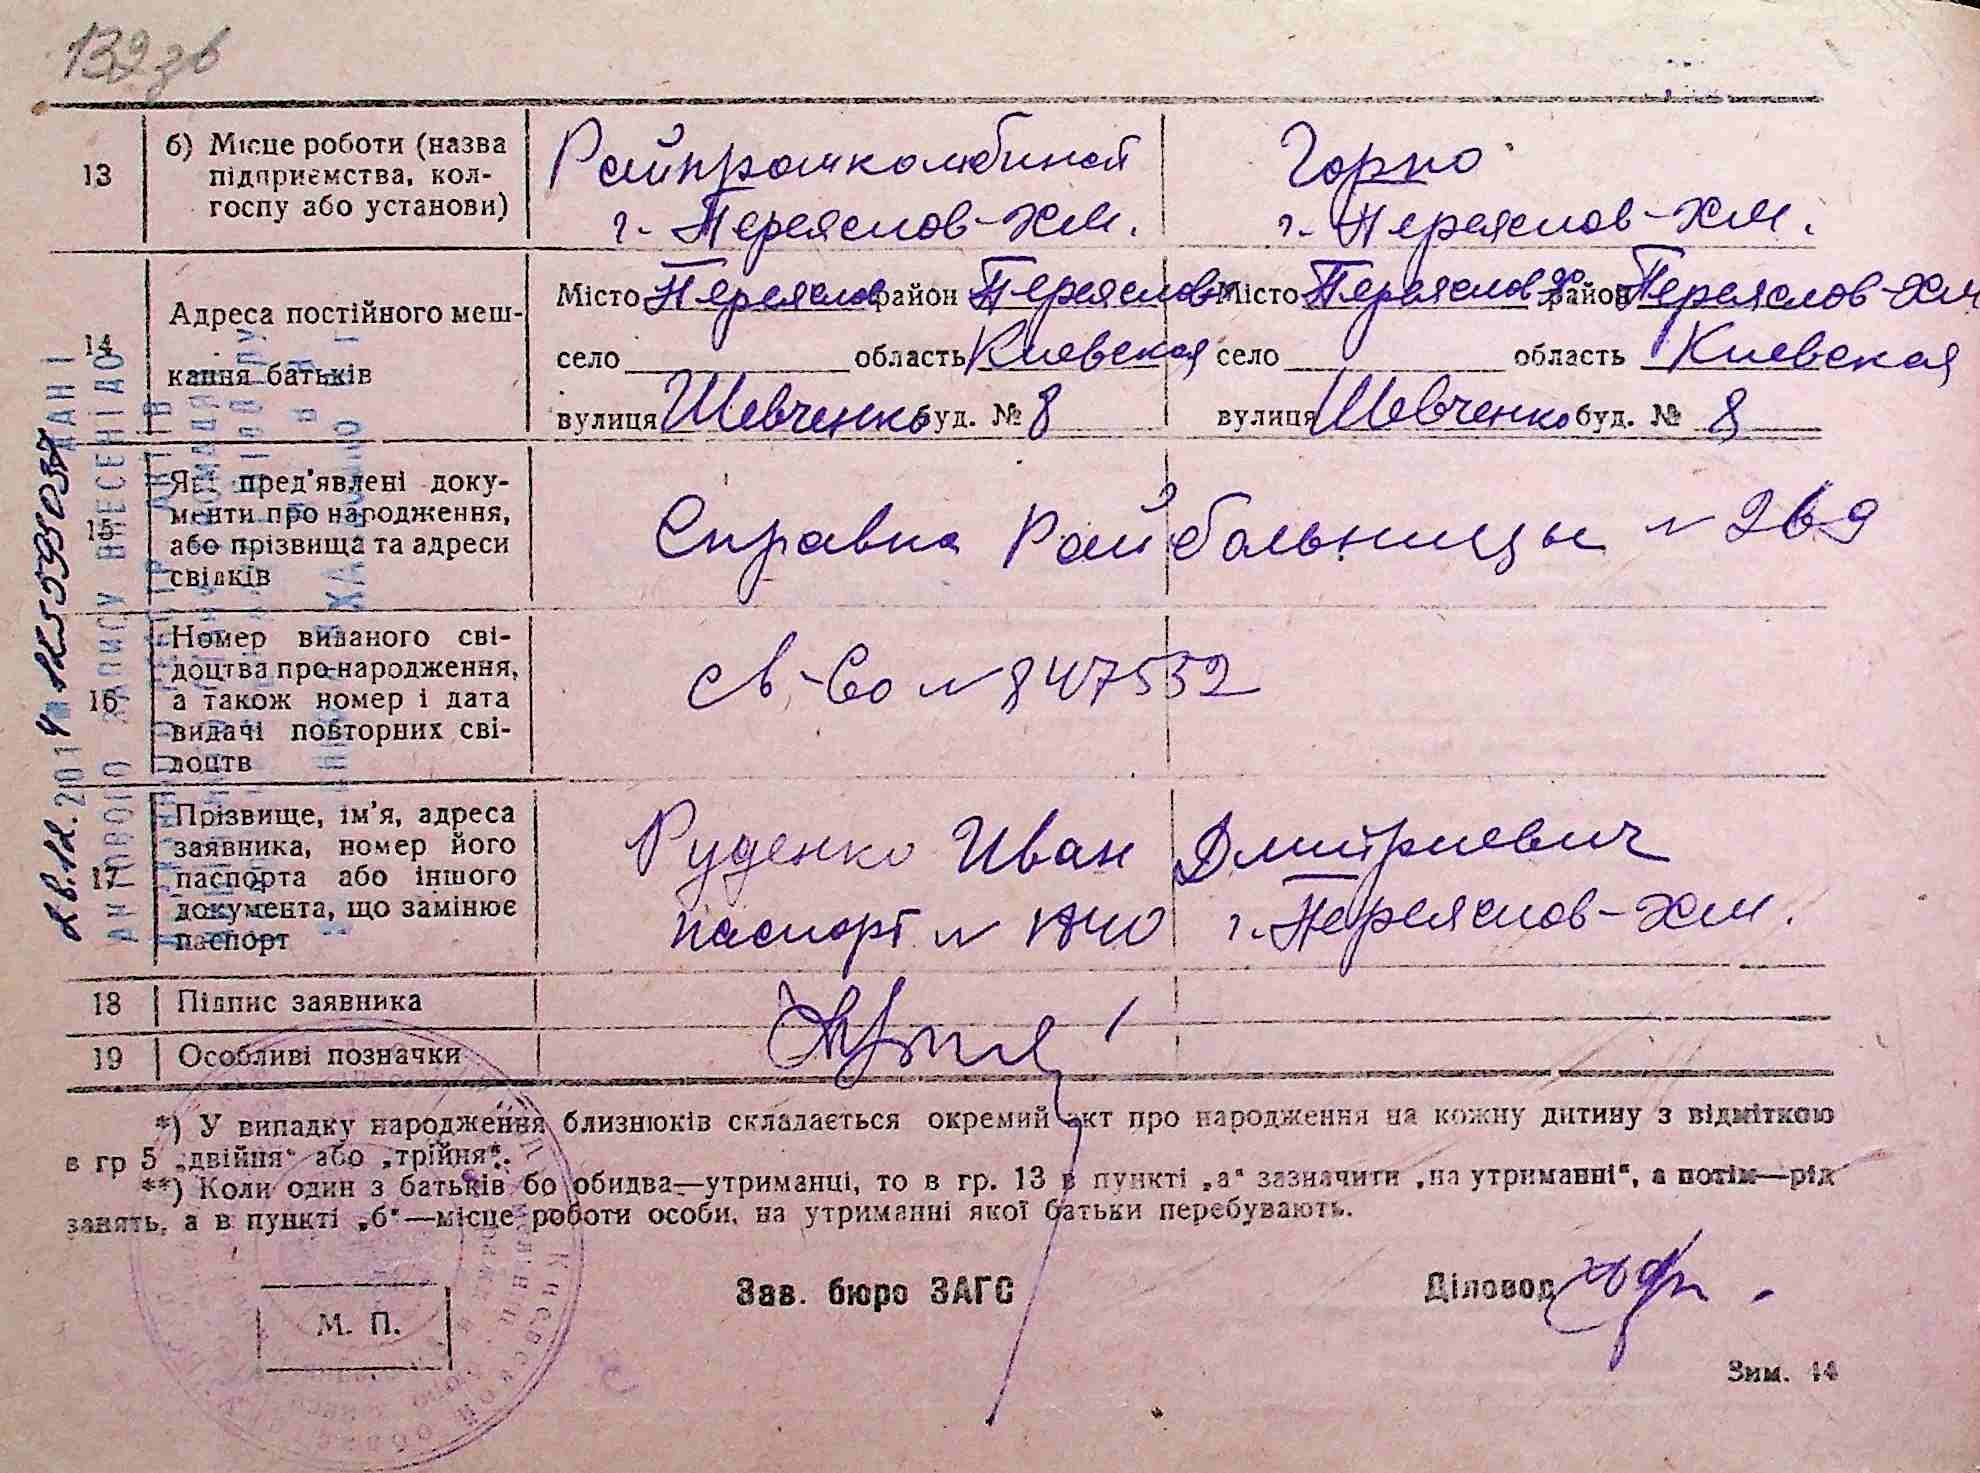 139 зв
13
б) Місце роботи (назва
підприємства, кол-
госпу або установи)
Райпромкомбинат
г. Переяслов-Хм.
Горпо
г. Переяслов-Хм.
14
Адреса постійного меш-
кання батьків
Місто Переяслов район Переяслов
село область Киевская
вулиця Шевченко буд. № 8
Місто Переяслов район Переяслов-Хм
село область Киевская
вулиця Шевченко буд. № 8
15
Які пред'явлені доку-
менти про народження,
або прізвища та адреси
свідків
Справка Райбольницы № 269
16
Номер виданого сві-
доцтва про народження,
а також номер і дата
видачі повторних сві-
доцтв
св-во № 847532
17
Прізвище, ім'я, адреса
заявника, номер його
паспорта або іншого
документа, що замінює
паспорт
Руденко Иван Дмитриевич
паспорт № г. Переяслов-Хм.
18
Підпис заявника
19
Особливі позначки
*) У випадку народження близнюків складається окремий акт про народження на кожну дитину з відміткою
в гр 5 „двійня“ або „трійня“.
**) Коли один з батьків бо обидва—утриманці, то в гр. 13 в пункті „а“ зазначити „на утриманні“, а потім—рід
занять, а в пункті „б“—місце роботи особи, на утриманні якої батьки перебувають.
М. П.
Зав. бюро ЗАГС
Діловод
Зим. 14